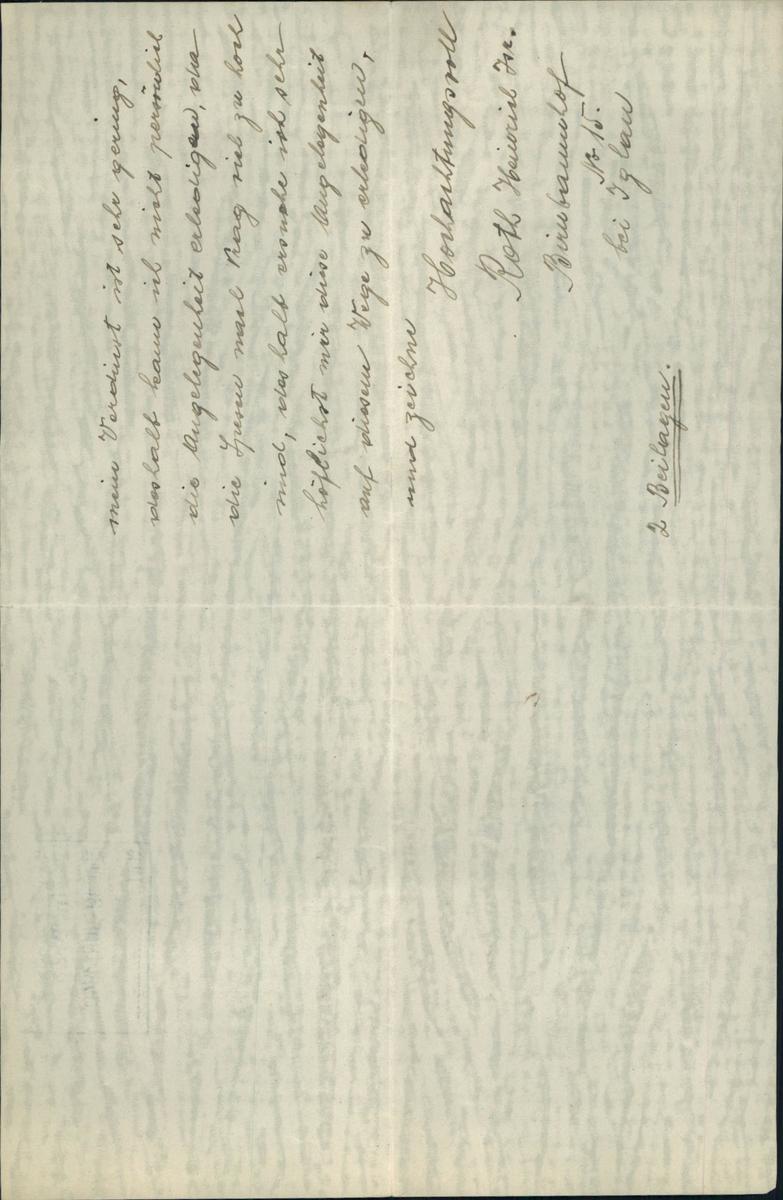 mein Verdienst ist sehr gering,
deshalb kann ich nicht persönlich
die Angelegenheit erledigen, da
die Spesen nach Prag viel zu hoch
sind, deshalb ersuche ich sehr
höflichst mir diese Angelegenheit
auf diesem Wege zu erledigen,
und zeichne
Hochachtungsvoll
Roth Heinrich Isr.
Birnbaumhof
No 15.
bei Iglau
2 Beilagen.